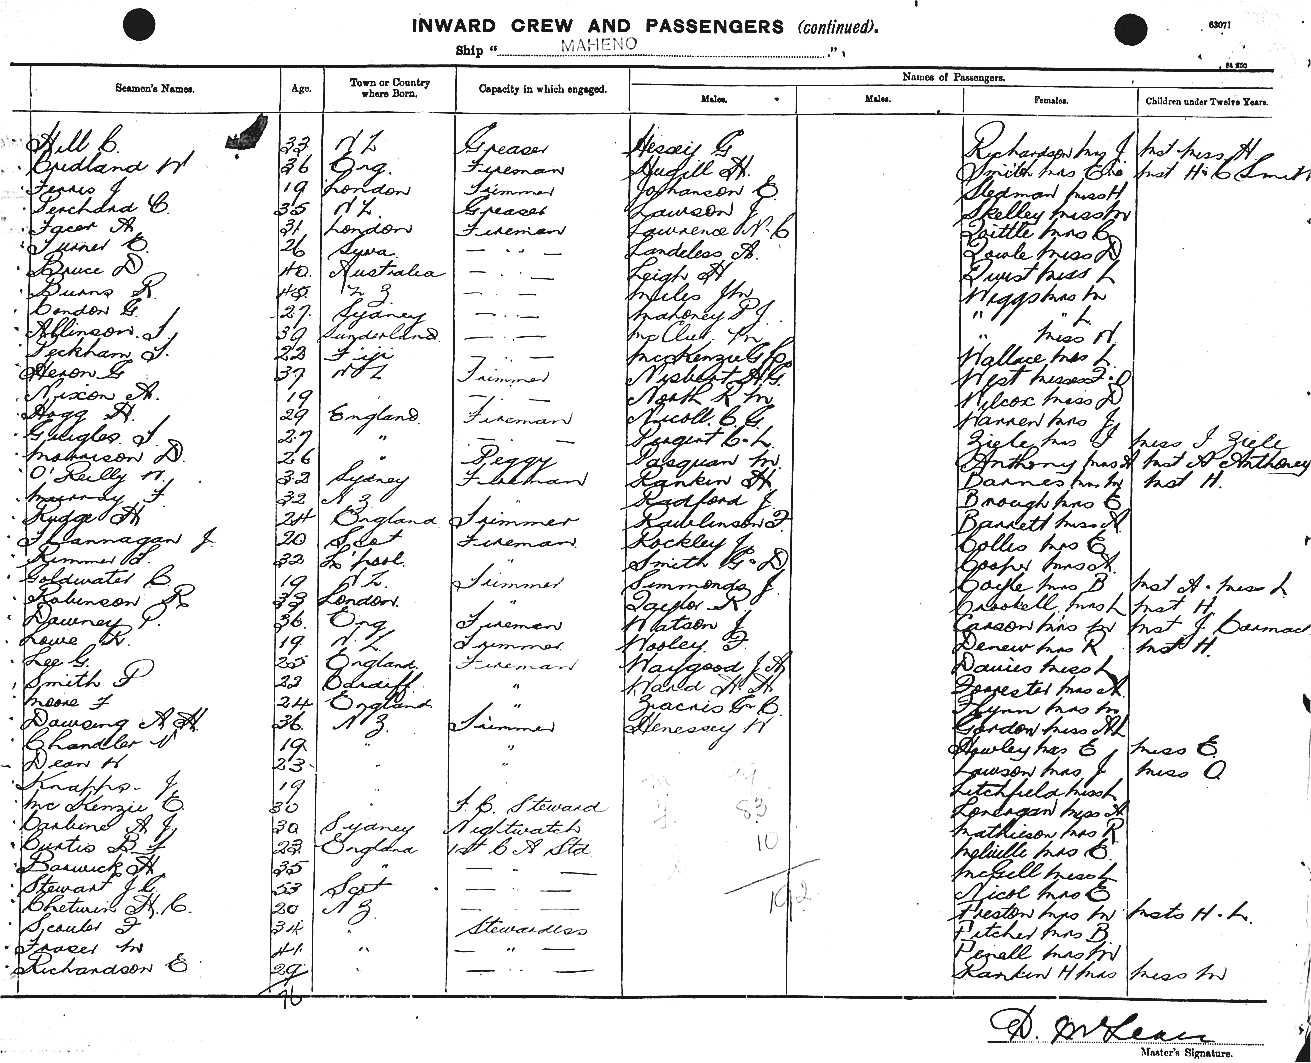 INWARD CREW AND PASSENGERS (continued).
63071
Ship " MAHENO "
Names of Passengers.
Seamen's Names. Age. Town or Country where Born. Capacity in which engaged. Males. Males. Females. Children under Twelve Years.
Hill C. 33 N Z Greaser Hessey G Richardson Mrs J. Mst Miss H
Cridland W 36 Eng. Fireman Hugill H. Smith Mrs Mst H. C Smith
Ferris J 19 London Trimmer Johanson E. Sedman Miss H
Perchard C. 35 N Z. Greaser Lawson J Skelley Miss M
Facer A 31 London Fireman Lawrence N. C Little Mrs C
Turner E. 26 Landeless A. Miss D
Bruce D 40. Australia — " — Leigh H Miss L
Burns R. 45 N Z — " — Miles J M Wiggs Mrs M
Condon G. 27. Sydney — " — Mahoney P J. " " L
Allinson J 39 Sunderland — " — " Miss N.
Peckham J. 22 Fiji — " — McKenzie G Wallace Mrs L.
Heron G 37 N Z Trimmer Nisbert H G. West Misses J. O
Nixon A. 19 — " — North R M Wilcox Miss D
Hogg H. 29 England. Fireman Nicoll. C G. Warren Mrs J,
27 " — " — Pargent C. L. Ziele Mrs J Miss J Ziele
Morrison D. 26 " Peggy Pasquan M. Anthony Mrs A Mst A Anthoney
O'Reilly W. 32 Sydney Fireman Rankin H Barnes Mrs M Mst H.
Murray F 32 N Z " Radford J Brough Mrs E
Rudge H 24 England Trimmer Rawlinson F. Barrett Miss A
Flannagan J. 20 Scot Fireman. Rockley J Colles Mrs E
Rimmer L. 32 L'pool. " Smith G. D Cooper Mrs A.
Goldwater C 19 N Z. Trimmer Simmonds J Coyle Mrs B Mst A. Miss L
Robinson R 39 London. " Taylor R Crookell Mrs L Mst H.
Downey P. 36. Eng Fireman Watson J Carson Mrs M Mst J. Carmac
Lowe R. 19 N. Z Trimmer Wooley F. Denew Mrs R Mst H.
Lee G. 25 England. Fireman Waygood J A Davies Miss L
Smith P 22 Cardiff. " Ward H A Forrester Mrs A.
Moore F 24 England " Zacris G. C. Flynn Mrs M
Dawsing A H. 36 N Z. Trimmer Henessey W Gordon Miss
Chandler V 19 " " Howley Mrs E Miss E.
Dean H 23 " " Lawson Mrs J Miss O
Knapps. J, 19 " Litchfield Miss L
McKenzie E. 30 " F. C. Steward 83 Lonergan Miss A
Carbine A J, 30 Sydney Nightwatch Mathieson Mrs R
Curtis B F 23 England 1st C A Std 10 Melville Mrs E.
Barwick H 35 " — " — McGill Miss L
Stewart J G. 53 Scot — " — 192 Nicol Mrs E
Chetwin H. C. 20 N Z — " — Preston Mrs M Msts H. L.
Scouler F 34 " Stewardess Pitcher Mrs B
Fraser M 41. " — " — Penell Mrs M
Richardson E 29 " — " — Rankin H Mrs Miss M
76
D. McLean
Master's Signature.